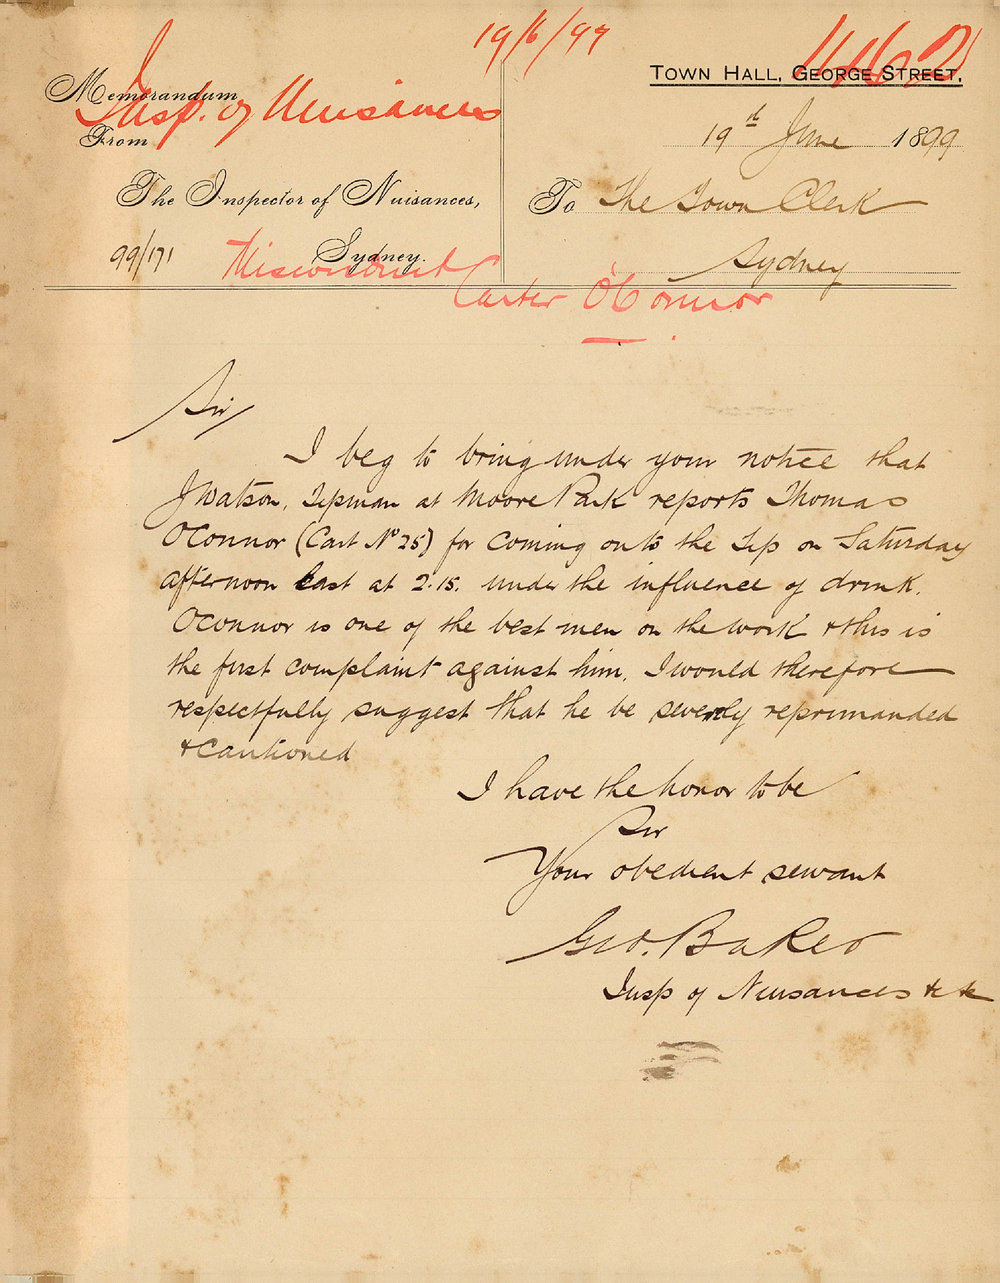 19/6/99
Insp. of Nuisances
Memorandum
From
The Inspector of Nuisances,
Sydney.
99/171
TOWN HALL, GEORGE STREET,
19th June 1899
To The Town Clerk
Sydney
Misconduct Carter O'Connor
Sir
I beg to bring under your notice that
J Watson, Tipman at Moore Park reports Thomas
O'Connor (Cart No 25) for coming onto the Tip on Saturday
afternoon last at 2.15. under the influence of drink.
O'Connor is one of the best men on the work & this is
the first complaint against him. I would therefore
respectfully suggest that he be severely reprimanded
& cautioned
I have the honor to be
Sir
Your obedient servant
Geo. Baker
Insp of Nuisances &c &c